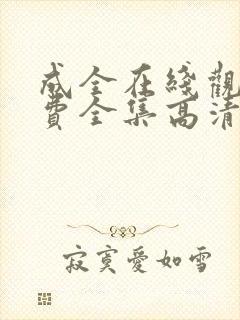 成全在綫觀
費全集高清
寂寞愛如雪